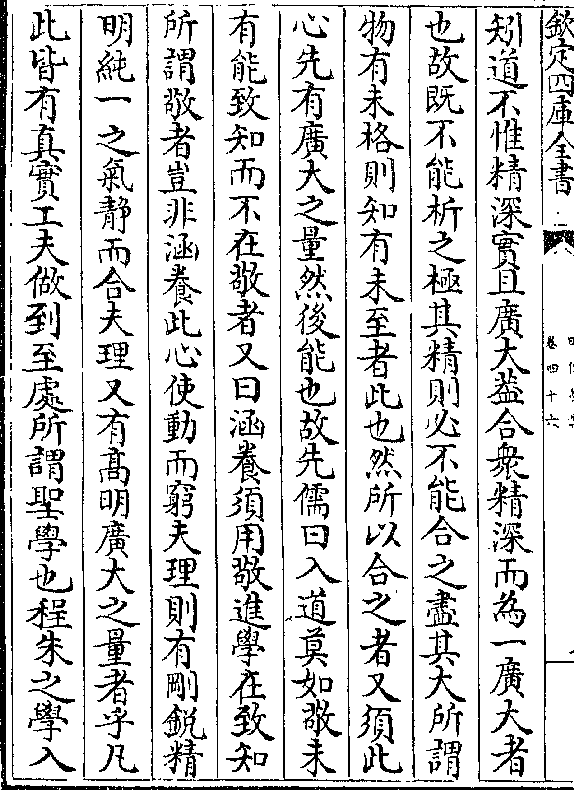 欽定四庫全書
卷四十六
知道不惟精深實且廣大葢合衆精深而為一廣大者
也故既不能析之極其精則必不能合之盡其大所謂
物有未格則知有未至者此也然所以合之者又須此
心先有廣大之量然後能也故先儒曰入道莫如敬未
有能致知而不在敬者又曰涵養須用敬進學在致知
所謂敬者豈非涵養此心使動而窮夫理則有剛鋭精
明純一之氣静而合夫理又有髙明廣大之量者乎凡
此皆有真實工夫做到至處所謂聖學也程朱之學入